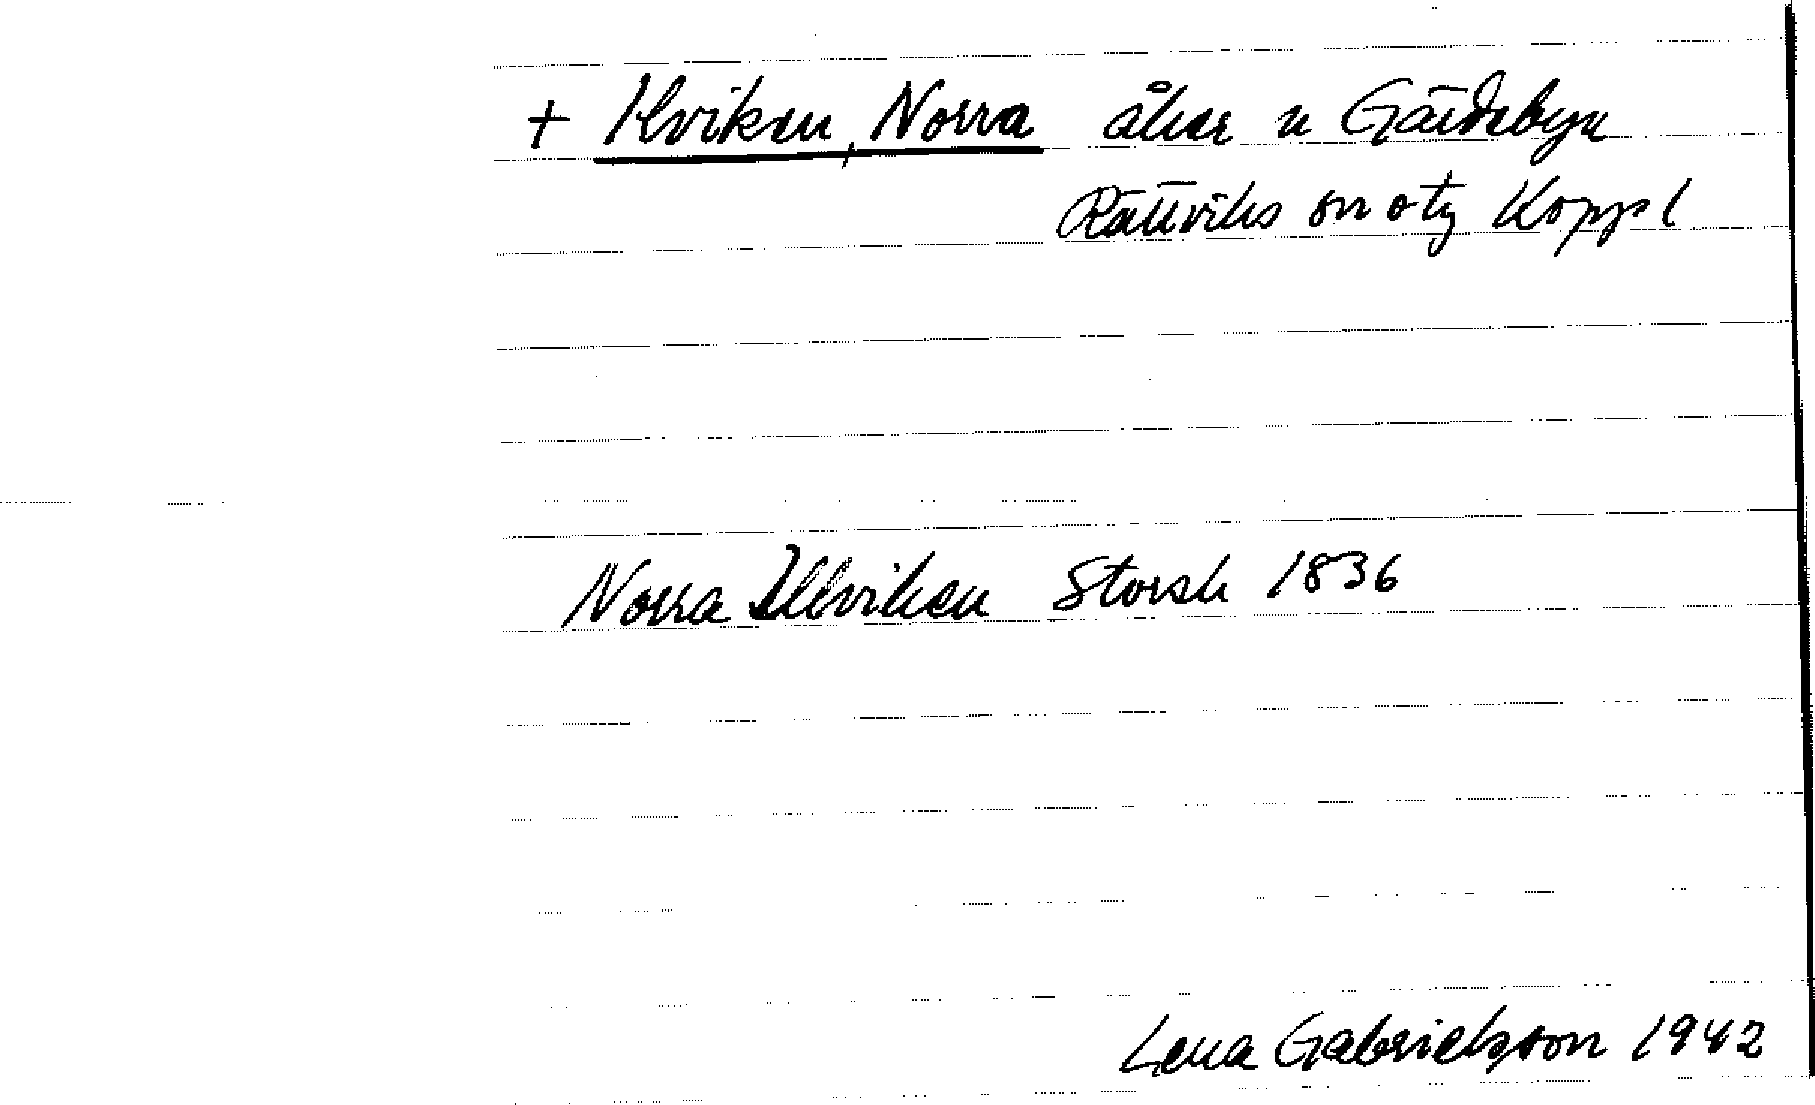 + Ilviken, Norra åker n Gärdebyn
Rättviks sn otg Koppl
Norra Illviken Storsk 1836
Lena Gabrielsson 1942